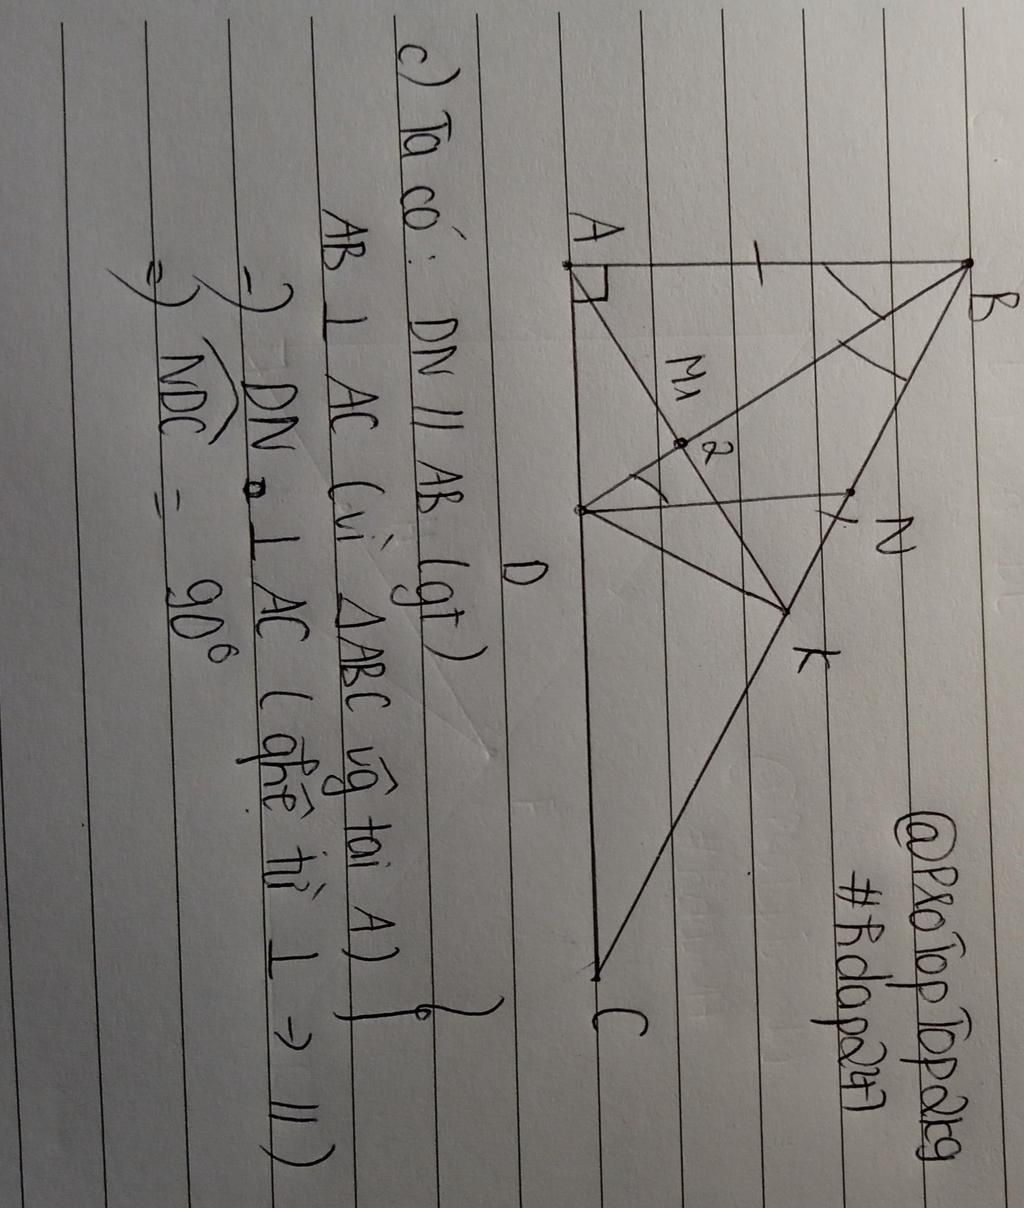 @ProTopTop2kg
#Rdap247
B
N
K
M1
2
A
C
D
c) Ta có: DN // AB (gt)
AB ⊥ AC (vì ΔABC vg tại A) }
=) DN ⊥ AC (qhệ từ ⊥ → //)
=) NDC = 90°